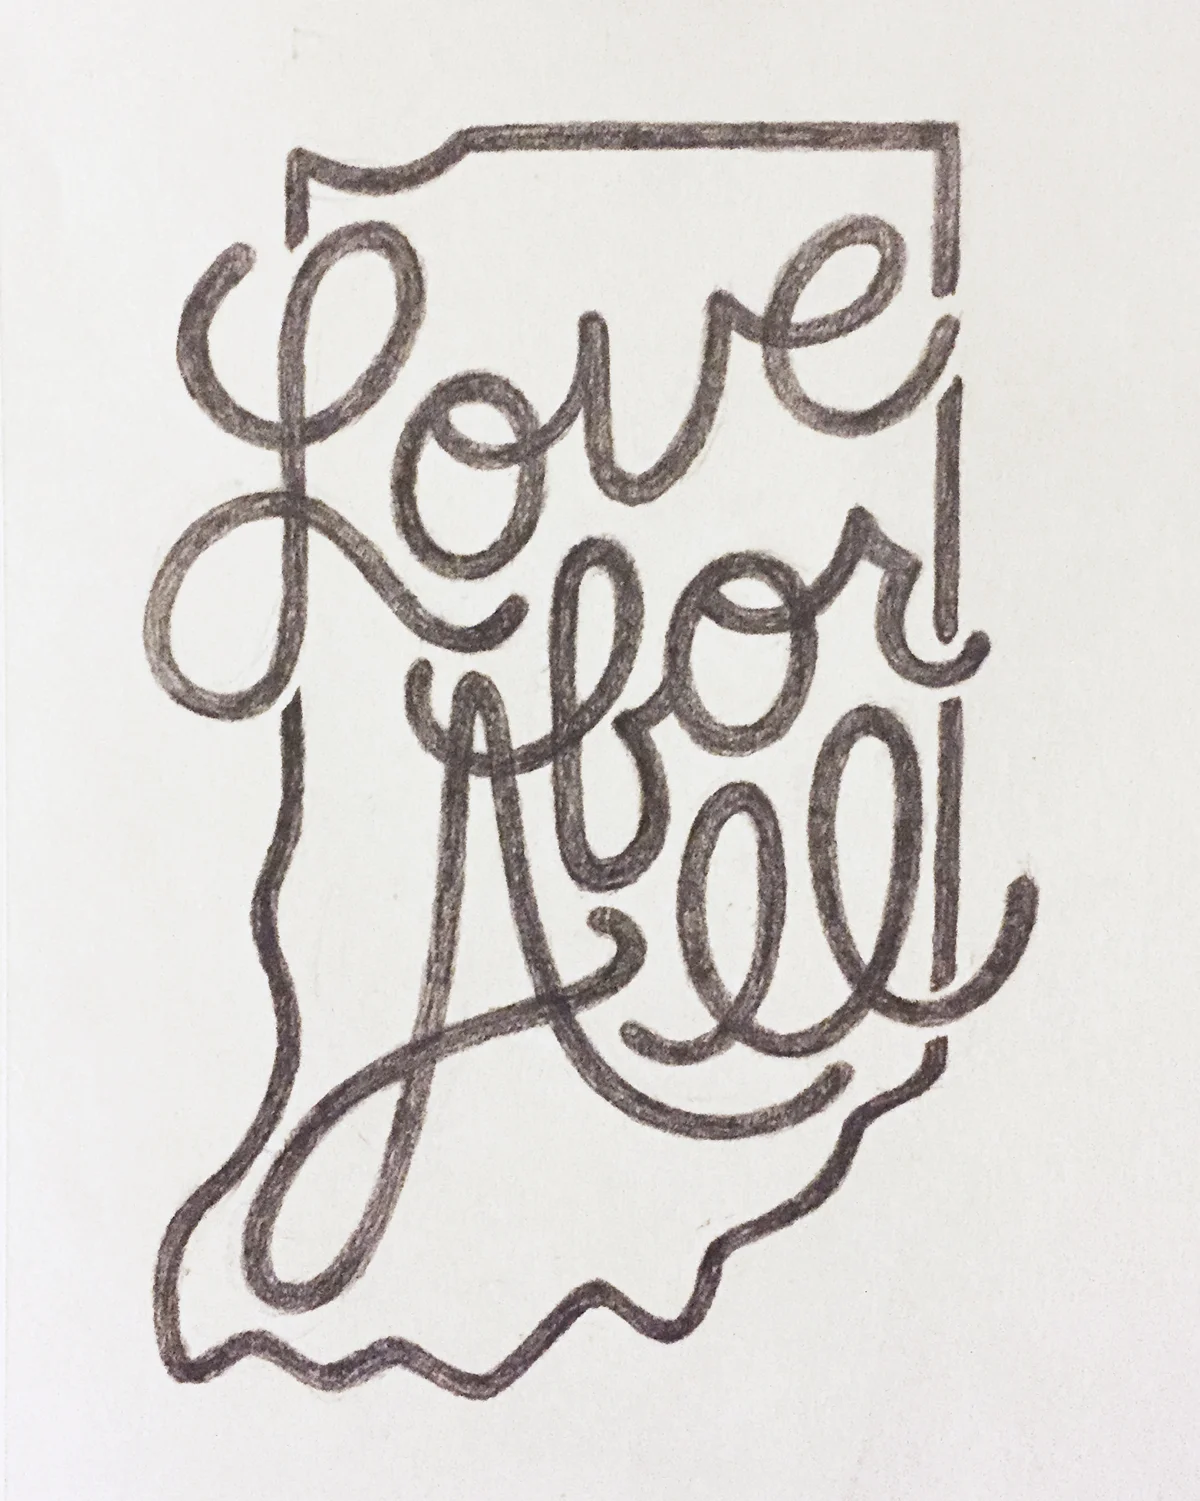 Love
for
All